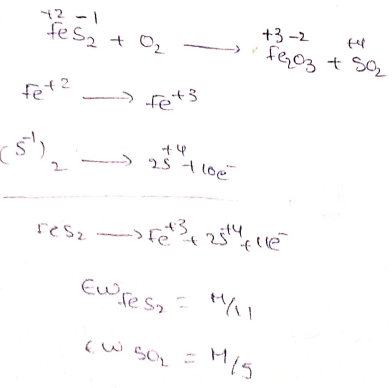 +2 -1 +3 -2 +4
FeS2 + O2 ⟶ Fe2O3 + SO2
Fe+2 ⟶ Fe+3
(S-1)2 ⟶ 2S+4 + 10e-
FeS2 ⟶ Fe+3 + 2S+4 + 11e-
EW FeS2 = M/11
EW SO2 = M/5